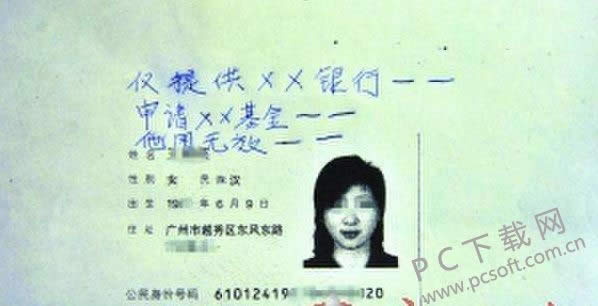 仅提供××银行——
申请××基金——
他用无效——
姓名
性别 女 民族 汉
出生 19 年6月9日
住址 广州市越秀区东风东路
公民身份号码 61012419 020
PC下载网
www.pcsoft.com.cn